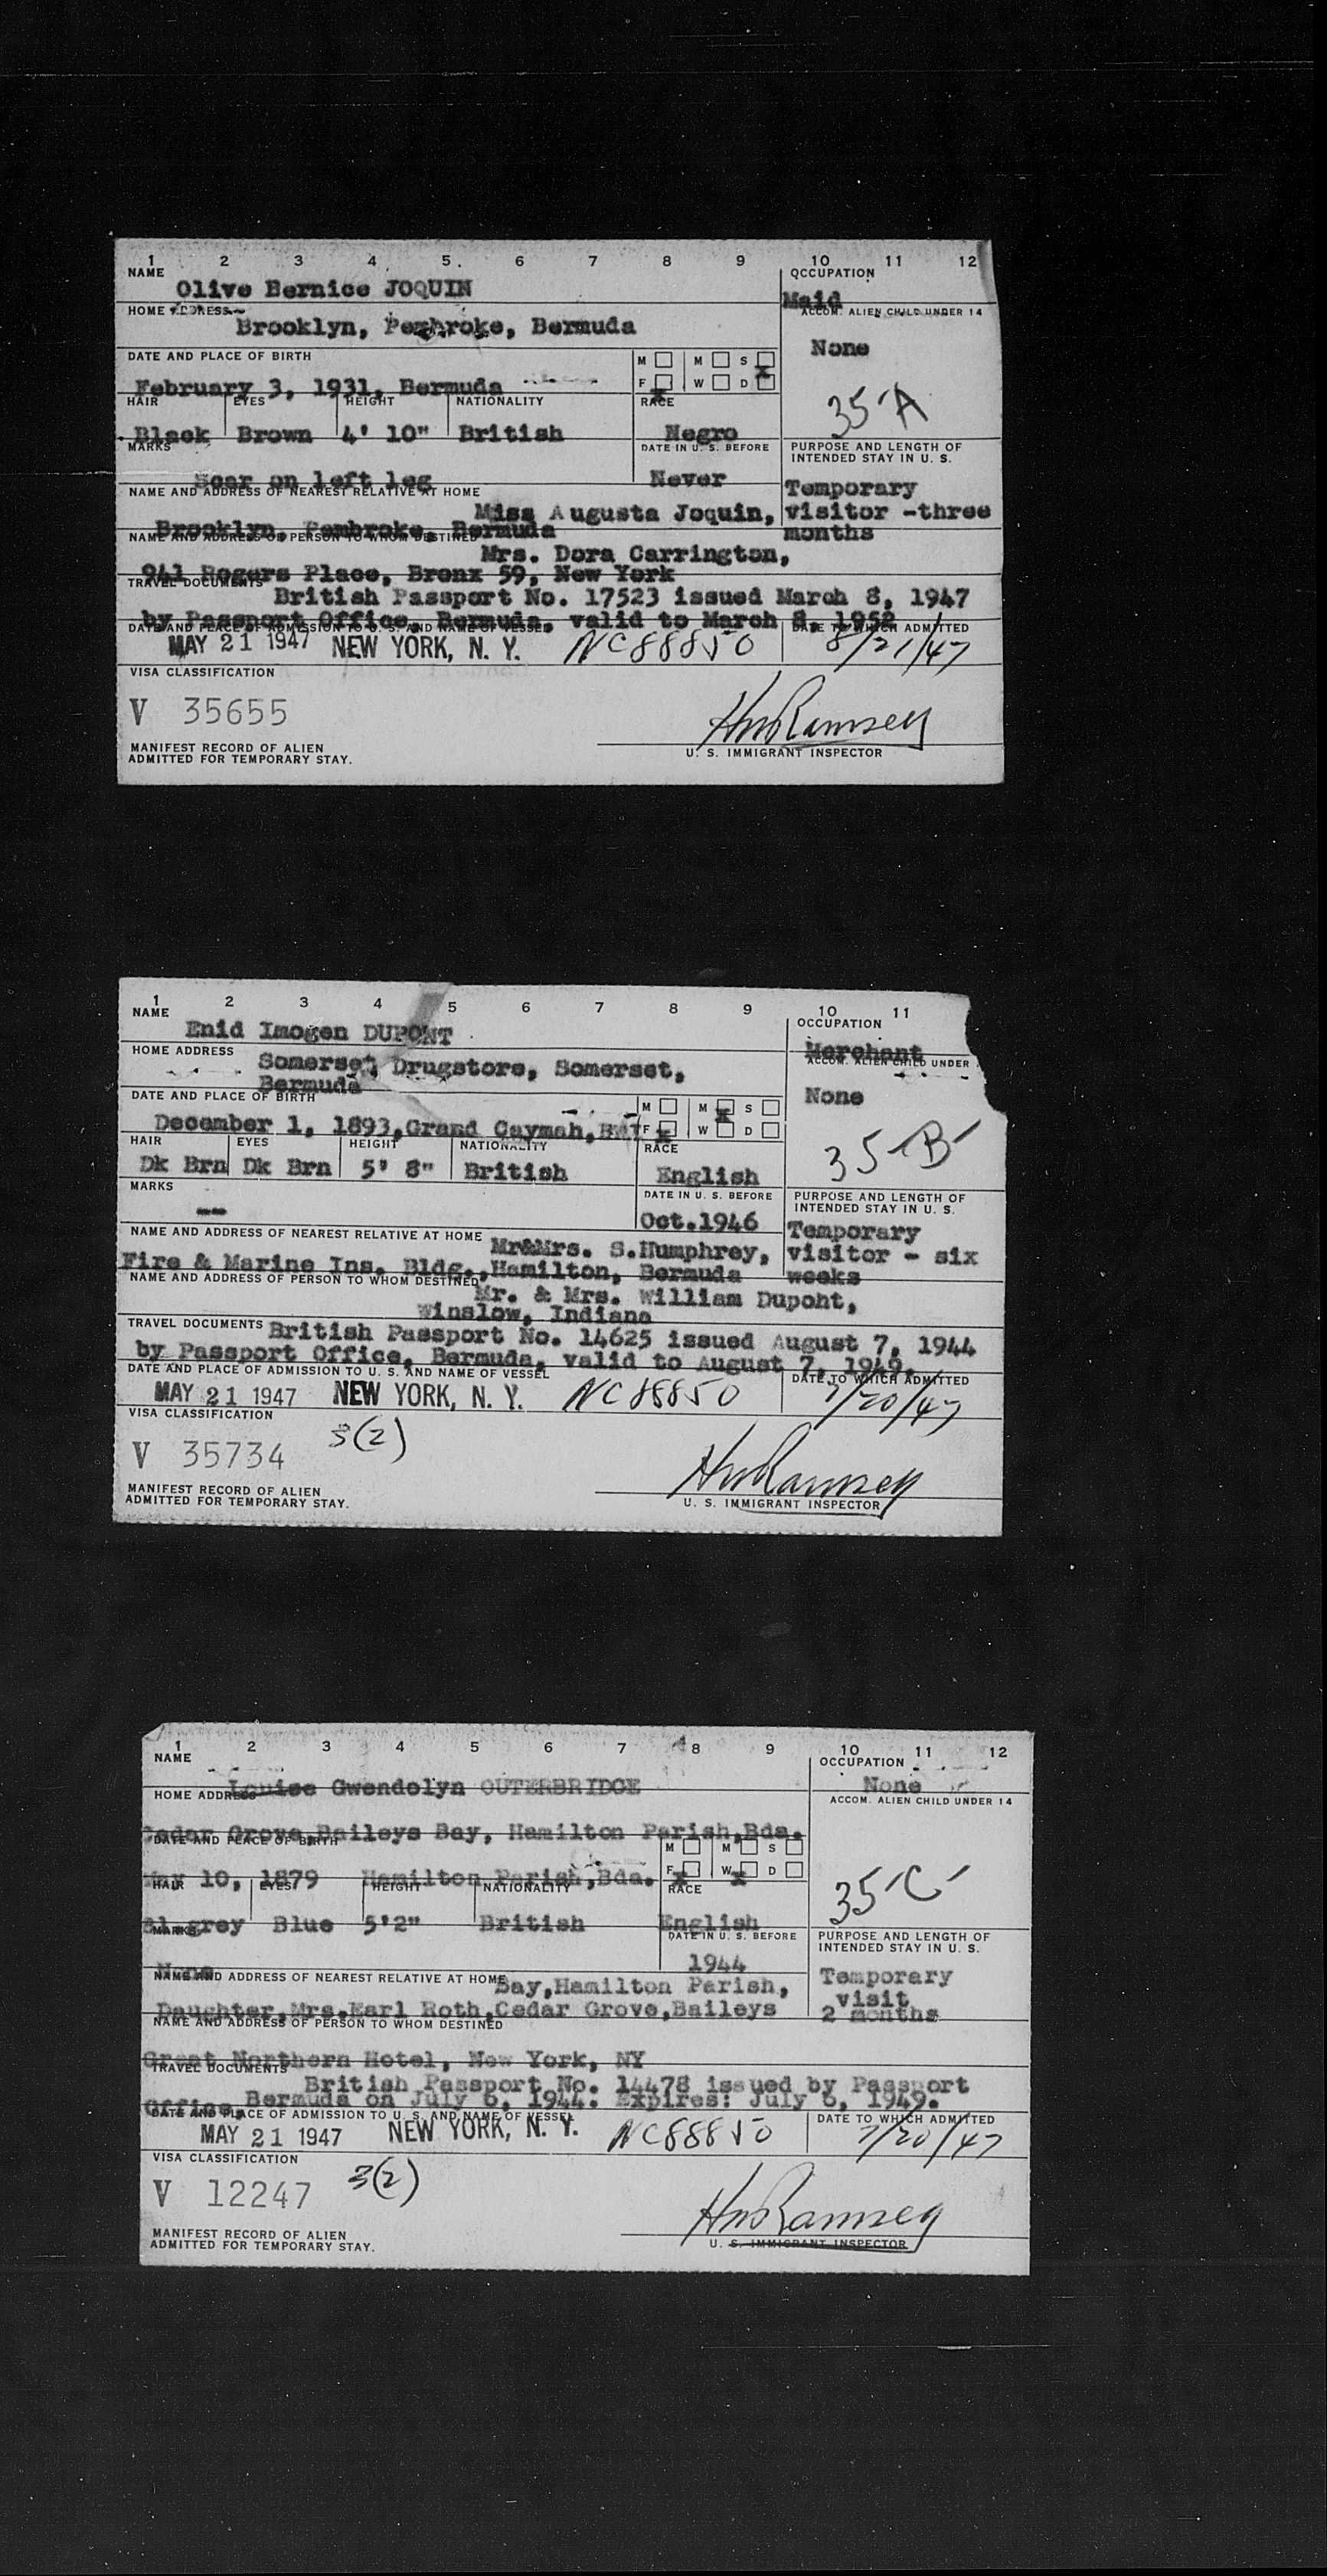 1 2 3 4 5 6 7 8 9 10 11 12
NAME OCCUPATION
Olive Bernice JOQUIN Maid
HOME ADDRESS ACCOM. ALIEN CHILD UNDER 14
Brooklyn, Pembroke, Bermuda
None
DATE AND PLACE OF BIRTH M M S
February 3, 1931, Bermuda F x W D x
HAIR EYES HEIGHT NATIONALITY RACE
35-A
Black Brown 4' 10" British Negro
MARKS DATE IN U. S. BEFORE PURPOSE AND LENGTH OF
INTENDED STAY IN U. S.
Scar on left leg Never Temporary
NAME AND ADDRESS OF NEAREST RELATIVE AT HOME
Miss Augusta Joquin, visitor -three
Brooklyn, Pembroke, Bermuda months
NAME AND ADDRESS OF PERSON TO WHOM DESTINED
Mrs. Dora Carrington,
941 Rogers Place, Bronx 59, New York
TRAVEL DOCUMENTS
British Passport No. 17523 issued March 8, 1947
by Passport Office, Bermuda, valid to March 8, 1952
DATE AND PLACE OF ADMISSION TO U. S. AND NAME OF VESSEL DATE TO WHICH ADMITTED
MAY 21 1947 NEW YORK, N. Y. NC88850 8/21/47
VISA CLASSIFICATION
V 35655 HW Ramsey
MANIFEST RECORD OF ALIEN U. S. IMMIGRANT INSPECTOR
ADMITTED FOR TEMPORARY STAY.
1 2 3 4 5 6 7 8 9 10 11
NAME OCCUPATION
Enid Imogen DUPONT
HOME ADDRESS Merchant
Somerset Drugstore, Somerset, ACCOM. ALIEN CHILD UNDER
Bermuda
DATE AND PLACE OF BIRTH None
M M x S
December 1, 1893, Grand Cayman, BWI F x W D
HAIR EYES HEIGHT NATIONALITY RACE
35-B
Dk Brn Dk Brn 5' 8" British English
MARKS DATE IN U. S. BEFORE PURPOSE AND LENGTH OF
-- INTENDED STAY IN U. S.
Oct. 1946 Temporary
NAME AND ADDRESS OF NEAREST RELATIVE AT HOME
Mr&Mrs. S.Humphrey, visitor - six
Fire & Marine Ins. Bldg., Hamilton, Bermuda weeks
NAME AND ADDRESS OF PERSON TO WHOM DESTINED
Mr. & Mrs. William Dupont,
Winslow, Indiana
TRAVEL DOCUMENTS British Passport No. 14625 issued August 7, 1944
by Passport Office, Bermuda, valid to August 7, 1949.
DATE AND PLACE OF ADMISSION TO U. S. AND NAME OF VESSEL DATE TO WHICH ADMITTED
MAY 21 1947 NEW YORK, N. Y. NC88850 7/20/47
VISA CLASSIFICATION
3(2)
V 35734 HW Ramsey
MANIFEST RECORD OF ALIEN U. S. IMMIGRANT INSPECTOR
ADMITTED FOR TEMPORARY STAY.
1 2 3 4 5 6 7 8 9 10 11 12
NAME OCCUPATION
Louise Gwendolyn OUTERBRIDGE None
HOME ADDRESS ACCOM. ALIEN CHILD UNDER 14
Cedar Grove,Baileys Bay, Hamilton Parish,Bda.
DATE AND PLACE OF BIRTH M M S
May 10, 1879 Hamilton Parish,Bda. F x W x D
HAIR EYES HEIGHT NATIONALITY RACE
35-C
Bl.grey Blue 5'2" British English
MARKS DATE IN U. S. BEFORE PURPOSE AND LENGTH OF
INTENDED STAY IN U. S.
None 1944 Temporary
NAME AND ADDRESS OF NEAREST RELATIVE AT HOME
Bay,Hamilton Parish, visit
Daughter,Mrs.Earl Roth,Cedar Grove,Baileys 2 months
NAME AND ADDRESS OF PERSON TO WHOM DESTINED
Great Northern Hotel, New York, NY
TRAVEL DOCUMENTS
British Passport No. 14478 issued by Passport
Office,Bermuda on July 6, 1944. Expires: July 6, 1949.
DATE AND PLACE OF ADMISSION TO U. S. AND NAME OF VESSEL DATE TO WHICH ADMITTED
MAY 21 1947 NEW YORK, N. Y. NC88850 7/20/47
VISA CLASSIFICATION
3(2)
V 12247 HW Ramsey
MANIFEST RECORD OF ALIEN U. S. IMMIGRANT INSPECTOR
ADMITTED FOR TEMPORARY STAY.